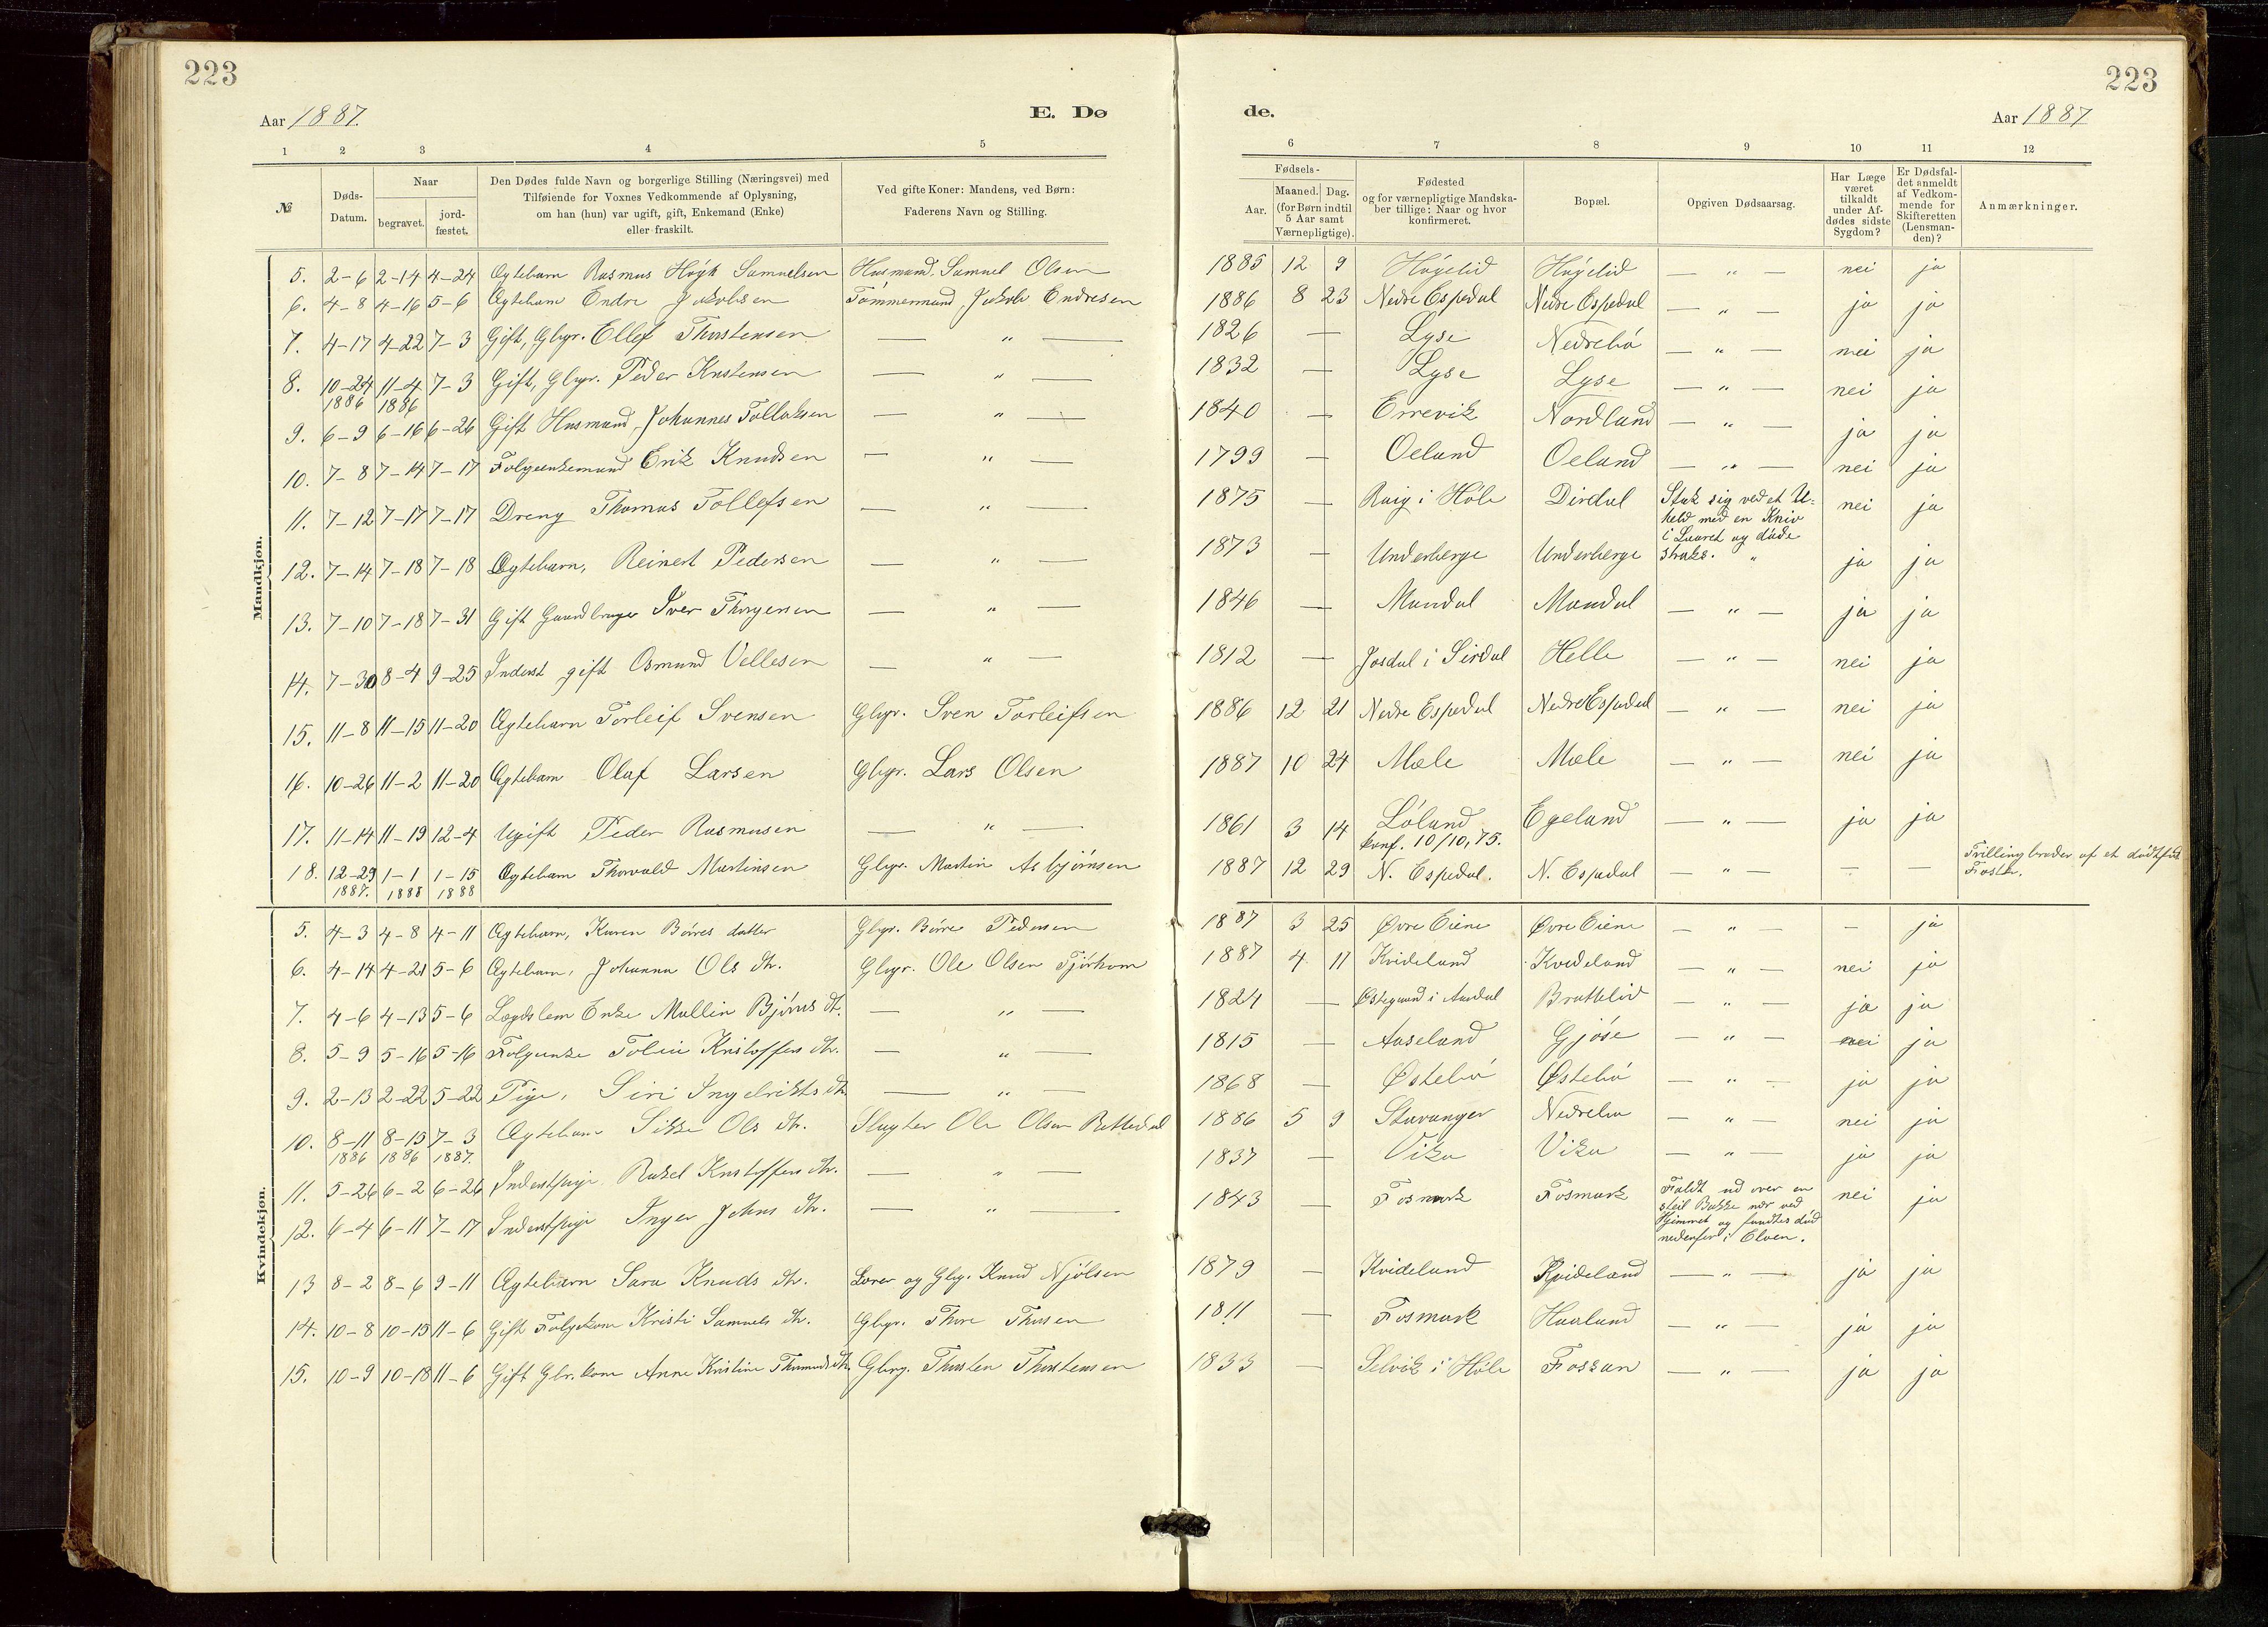 223
223
Aar 1887.
E. Dø
de.
Aar 1887
1 2 3 4 5
6 7 8 9 10 11 12
№
Døds-Datum.
Naar
begravet.
jord-fæstet.
Den Dødes fulde Navn og borgerlige Stilling (Næringsvei) med
Tilføiende for Voxnes Vedkommende af Oplysning,
om han (hun) var ugift, gift, Enkemand (Enke)
eller fraskilt.
Ved gifte Koner: Mandens, ved Børn:
Faderens Navn og Stilling.
Fødsels-
Aar.
Maaned. Dag.
(for Børn indtil
5 Aar samt
Værnepligtige).
Fødested
og for værnepligtige Mandska-
ber tillige: Naar og hvor
konfirmeret.
Bopæl.
Opgiven Dødsaarsag.
Har Læge
været
tilkaldt
under Af-
dødes sidste
Sygdom?
Er Dødsfal-
det anmeldt
af Vedkom-
mende for
Skifteretten
(Lensman-
den)?
Anmærkninger.
Mandkjøn.
5. 2-6 2-14 4-24 Ægtebarn Rasmus Høyk Samuelsen Husmand. Samuel Olsen 1885 12 9 Høgelid Høgelid — " — nei ja
6. 4-8 4-16 5-6 Ægtebarn Endre Jakobsen Tømmermand, Jakob Endresen 1886 8 23 Nedre Espedal Nedre Espedal — " — ja ja
7. 4-17 4-22 7-3 Gift, Gbgr. Ellef Thorstensen — " — 1826 — Lyse Nedrebø — " — nei ja
8. 10-24 11-4 7-3 Gift, Gbgr. Peder Knstensen — " — 1832 — Lyse Lyse — " — nei ja
1886 1886
9. 6-9 6-16 6-26 Gift Husmand, Johannes Tollaksen — " — 1840 — Errevik Nordland — " — ja ja
10. 7-8 7-14 7-17 Folgeenkemand Erik Knudsen — " — 1799 — Oeland Oeland — " — nei ja
11. 7-12 7-17 7-17 Dreng Thomas Tollefsen — " — 1875 — Ruig i Høle Dirdal Stak sig ved et U- nei ja
held med en Kniv
i Laaret og døde
straks.
12. 7-14 7-18 7-18 Ægtebarn, Reinert Pedersen — " — 1873 — Underberge Underberge " ja ja
13. 7-10 7-18 7-31 Gift Gaardbruger Iver Thorgersen — " — 1846 — Mandal Mandal — " — ja ja
14. 7-30 8-4 9-25 Inderst gift Osmund Vellesen — " — 1812 — Josdal i Sirdal Helle — " — nei ja
15. 11-8 11-15 11-20 Ægtebarn Torleif Svensen Gbgr. Sven Torleifsen 1886 12 21 Nedre Espedal Nedre Espedal — " — nei ja
16. 10-26 11-2 11-20 Ægtebarn Olaf Larsen Gbgr. Lars Olsen 1887 10 24 Mæle Mæle — " — nei ja
17. 11-14 11-19 12-4 Ugift Peder Rasmusen — " — 1861 3 14 Løland Egeland — " — ja ja
konf. 10/10, 75.
18. 12-29 1-1 1-15 Ægtebarn Thorvald Martinsen Gbgr. Martin Asbjørnsen 1887 12 29 N. Espedal. N. Espedal — " — — — Tvillingbroder af et dødtfødt
1887. 1888 1888 Foster.
Kvindekjøn.
5. 4-3 4-8 4-11 Ægtebarn, Karen Børresdatter Gbgr. Børre Pedersen 1887 3 25 Øvre Eiene Øvre Eiene — " — - ja
6. 4-14 4-21 5-6 Ægtebarn, Johanna Ols dtr. Gbgr. Ole Olsen Fjørhom 1887 4 11 Kvideland Kvideland — " — nei ja
7. 4-6 4-13 5-6 Lægdslem Enke Mallin Bjørns dt. — " — 1824 — Østegaard i Aardal Brattelid — " — ja ja
8. 5-9 5-16 5-16 Folgeenke Tolin Kristoffers dtr. — " — 1815 — Aaseland Gjøse — " — nei ja
9. 2-13 2-22 5-22 Pige, Siri Ingebrikts dtr. — " — 1868 — Østebø Østebø — " — ja ja
10. 8-11 8-15 7-3 Ægtebarn Sikke Ols dtr. Slagter Ole Olsen Rettedal 1886 5 9 Stavanger Nedrebø — " — nei ja
1886 1886 1887.
11. 5-26 6-2 6-26 Inderstpige Rakel Knstoffers dtr. — " — 1837 — Vika Vika — " — ja ja
12. 6-4 6-11 7-17 Inderstpige Inger Johns dtr. — " — 1843 — Fosmark Fosmark Faldt ud over en nei ja
steil Bakke nær ved
Hjemmet og fandtes død
nedenfor i Elven.
13 8-2 8-6 9-11 Ægtebarn Sara Knuds dtr. Lærer og Gbg. Knud Njølsen 1879 — Kvideland Kvideland — " — ja ja
14. 10-8 10-15 11-6 Gift Folgekone Kristi Samuels dtr. Gbgr. Thore Thorsen 1811 — Fosmark Haaland — " — ja ja
15. 10-9 10-18 11-6 Gift Gbr. kone Anne Kristine Thomasdtr. Gbrg. Thorsten Thorstensen 1833 — Selvik i Høle Fossan — " — ja ja